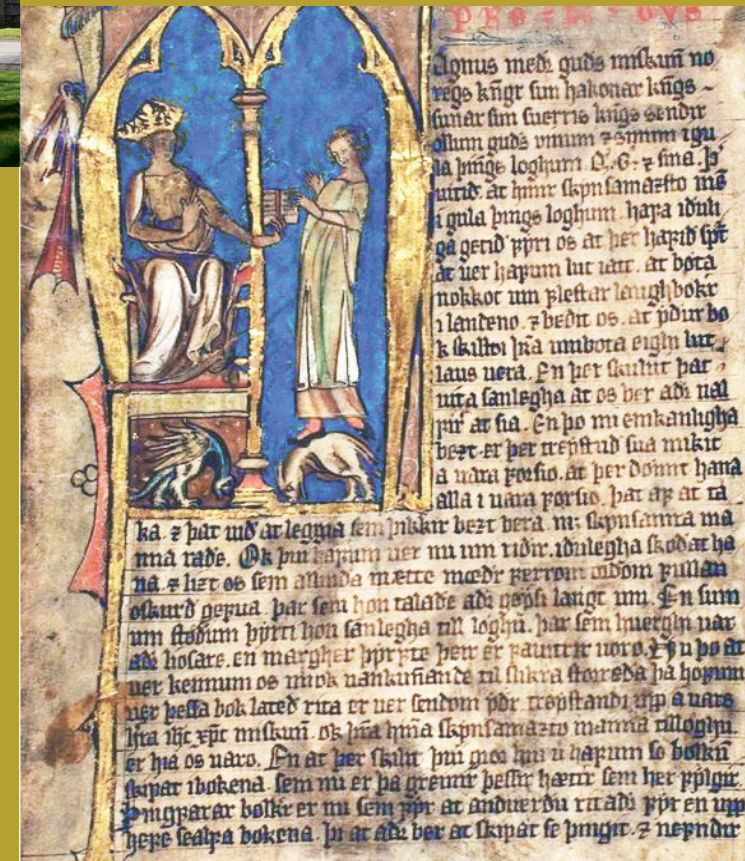 PROLOGVS
agnus með guðs miskuñ no
regs kñgr sun hakonar kñgs
sunar sun suerris kñgs sendir
ollum guðs uinum ⁊ sinum i gu
la þings loghum Q. G. ⁊ sina. Þ
uitið at hinir skynsamazto mē
i gula þings loghum. haꝼa iðuli
ga getið ꝼyri os at þer haꝼið spt
at uer haꝼum lut iatt. at bøta
nokkot um ꝼlestar laughbokr
i landeno. ⁊ beðit os. at yður bo
k skilldi þra umbota eighi lut
laus uera. En þer skulut þat
uita sanlegha at os ber aðr ual
ꝼyrir at sia. En þo nu einkanligha
bezt er þer treystuð sua mikit
a uara ꝼorsio. at þer dømit hana
alla i uara ꝼorsio. þat aꝼ at ta
ka. ⁊ þat uið at leggia sem þikkir bezt bera. m; skynsamra ma
nna raðe. Ok þui haꝼum uer nu um riðir. iðulegha skoðat ha
na. ⁊ lizt os sem
oskurð gerua. þar sem hon talaðe langt um. En sum
um stoðum þyrti hon sanlegha till loghū. þar sem huerghi uar
aðr hosare. en margher þyrꝼte þeir er ꝼauitrir uoro. þo at
uer kennum os miok uankunande til slikra storreða þa hoꝼum
uer þessa bok lateð rita er uer sendom yðr treystandi upp a uars
hra ihc xpc miskuñ. ok þra hina skynsamazto manna tilloghu.
er hia os uaro. En at þer skilit þui haꝼum so bolkū
skipat i bokena. sem nu er þa greinir þessir hættir sem her ꝼylgir.
Þingꝼarar bolkr er nu sem ꝼyr at anduerðu ritaðr ꝼyr en upp
heꝼe sealꝼa bokena. þi at aðr ber at skipat se þingit. ⁊ neꝼndir